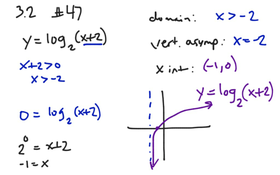 3.2 #47
y = log₂(x+2)
x+2>0
x>-2
0 = log₂(x+2)
2⁰ = x+2
-1 = x
domain: x > -2
vert. asymp: x = -2
x int: (-1,0)
y = log₂(x+2)